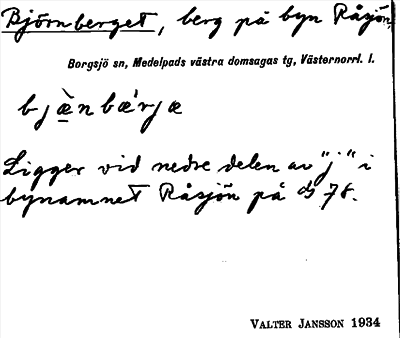 Björnberget, berg på byn Råsjön,
Borgsjö sn, Medelpads västra domsagas tg, Västernorrl. l.
bjæ̀nbæ´rjæ
Ligger vid nedre delen av "j" i
bynamnet Råsjön på 78.
VALTER JANSSON 1934